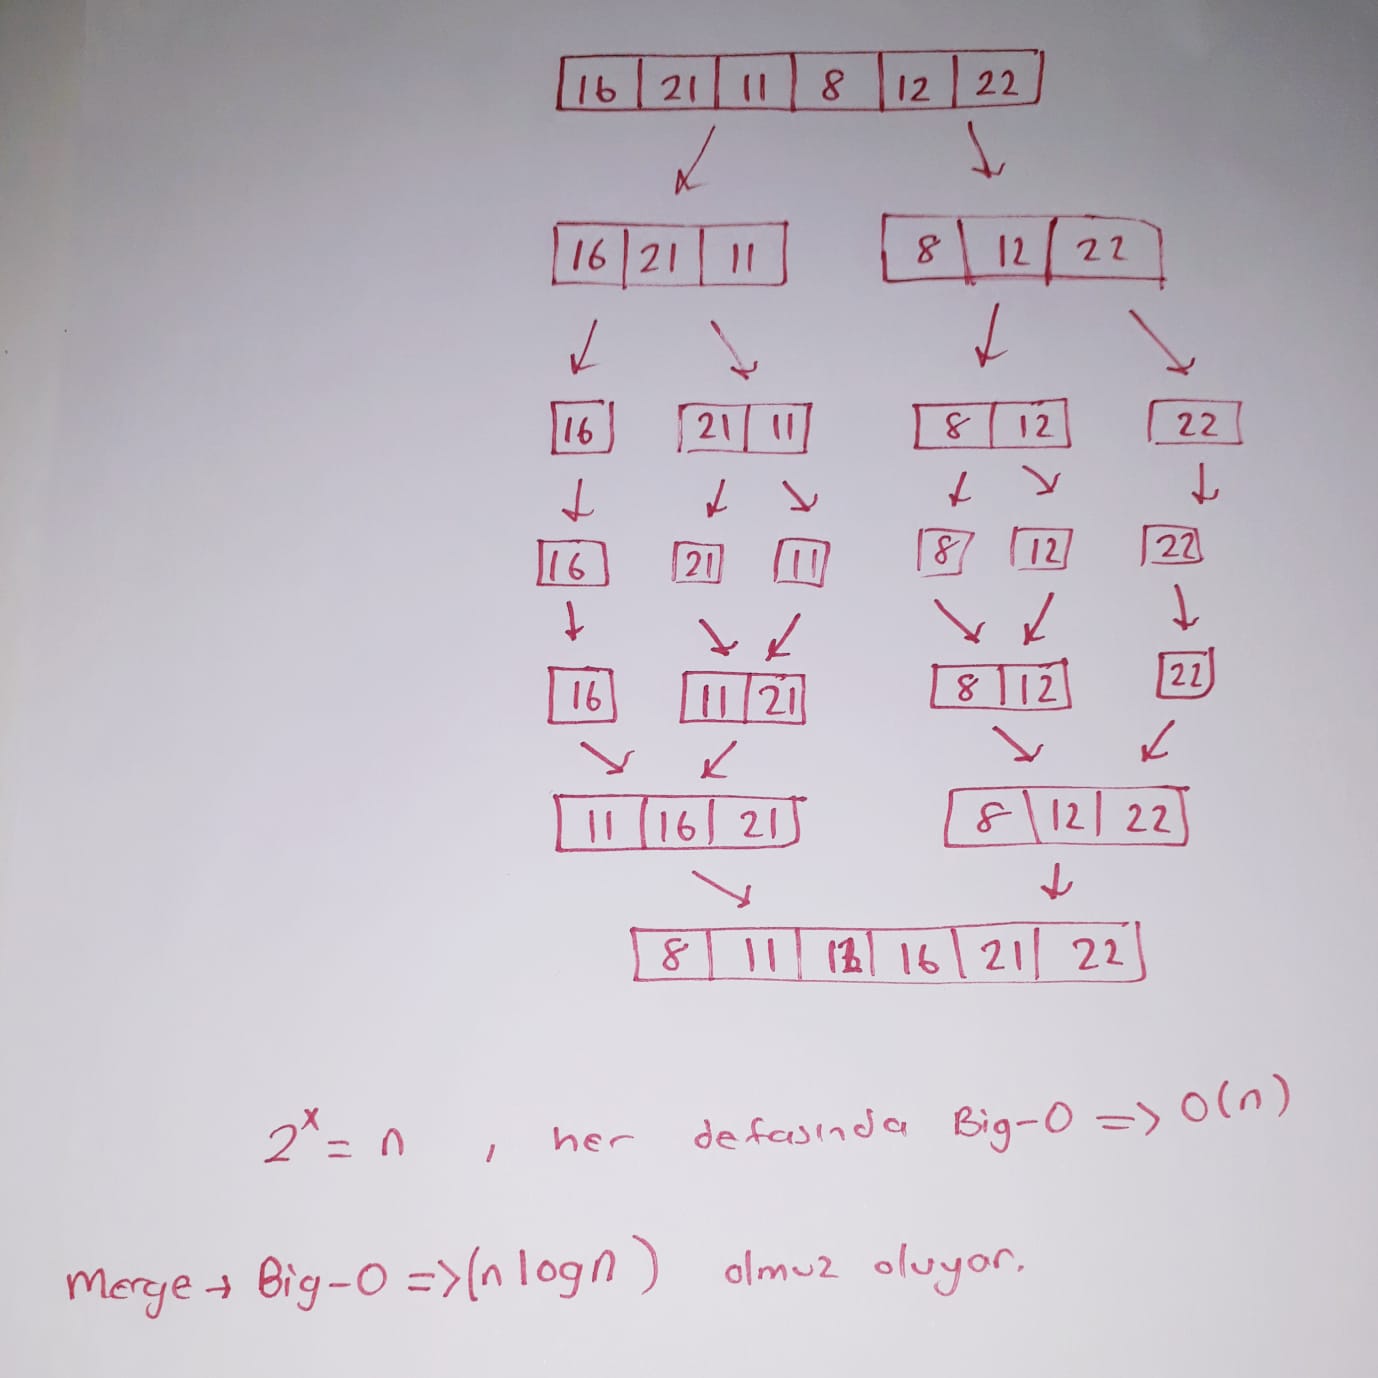 16 21 11 8 12 22
16 21 11 8 12 22
16 21 11 8 12 22
16 21 11 8 12 22
16 11 21 8 12 22
11 16 21 8 12 22
8 11 12 16 21 22
2ˣ = n , her defasında Big-O => O(n)
Merge → Big-O => (n logn) olmuz oluyor.